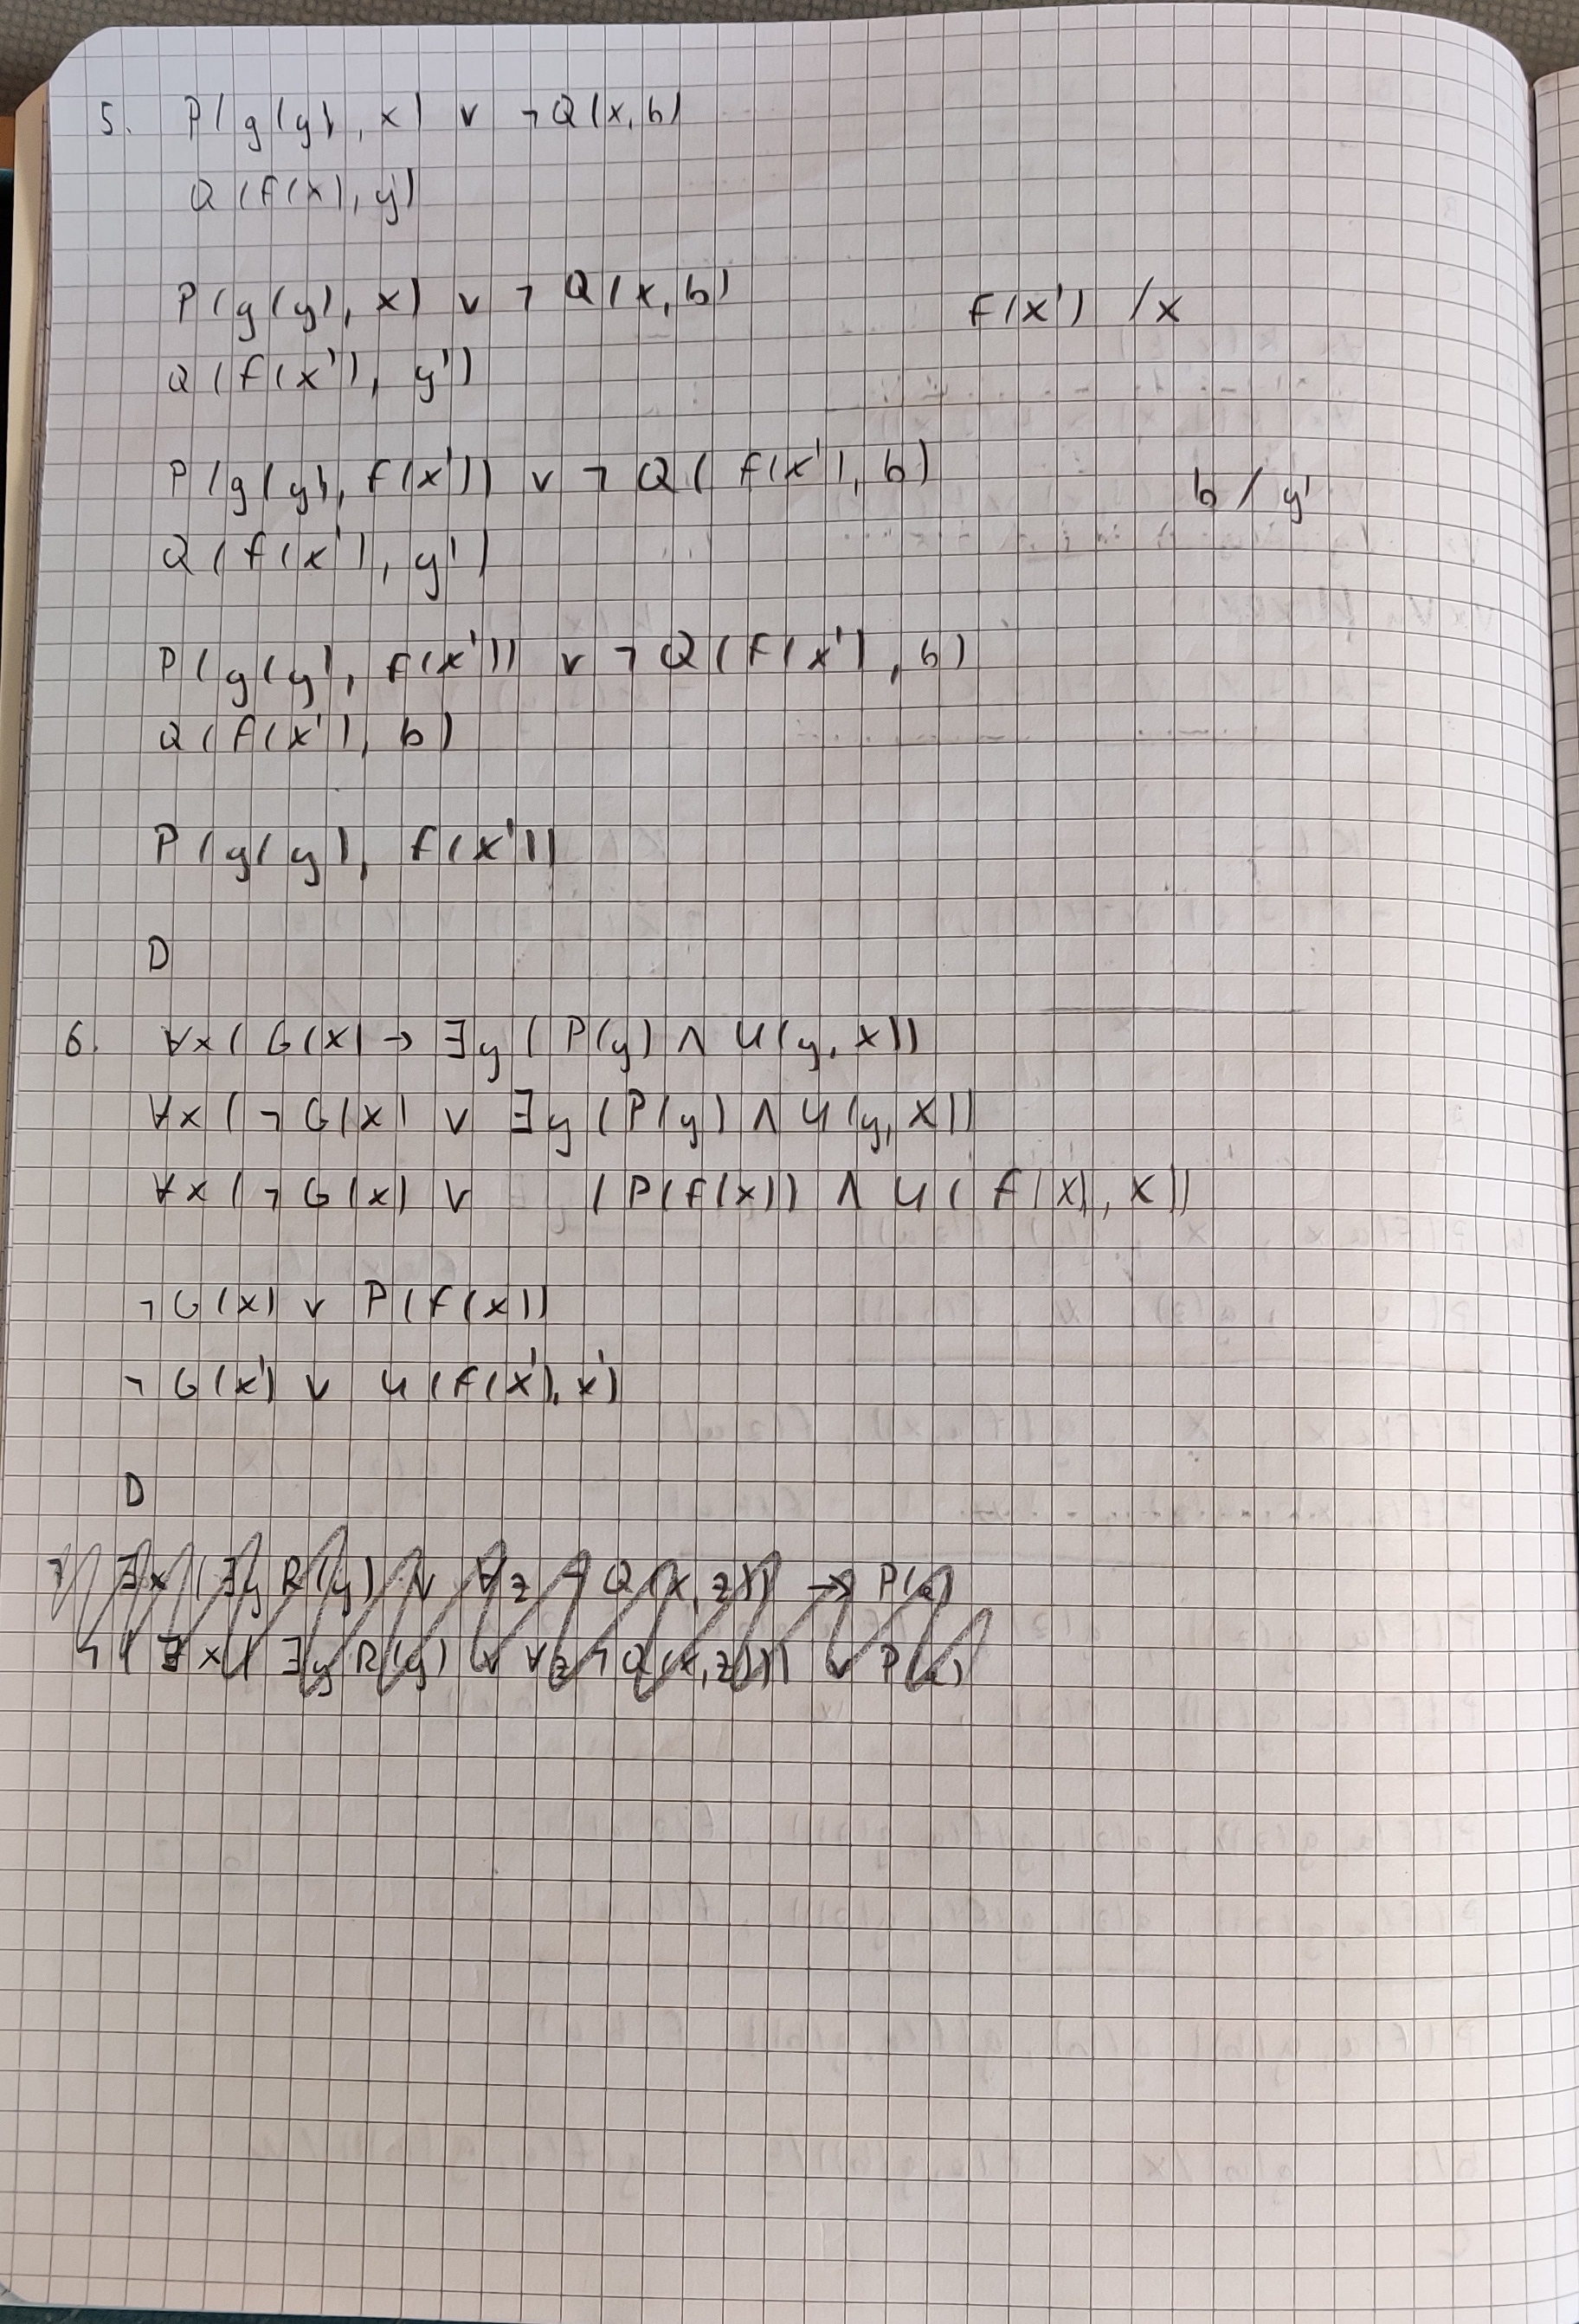 5. P(g(y), x) ∨ ¬Q(x, b)
Q(f(x), y)
P(g(y), x) ∨ ¬Q(x, b) f(x') /x
Q(f(x'), y')
P(g(y), f(x')) ∨ ¬Q(f(x'), b) b / y'
Q(f(x'), y')
P(g(y), f(x')) ∨ ¬Q(f(x'), b)
Q(f(x'), b)
P(g(y), f(x'))
D
6. ∀x(G(x) → ∃y(P(y) ∧ U(y, x))
∀x(¬G(x) ∨ ∃y(P(y) ∧ U(y, x))
∀x(¬G(x) ∨ (P(f(x)) ∧ U(f(x), x))
¬G(x) ∨ P(f(x))
¬G(x') ∨ U(f(x'), x')
D